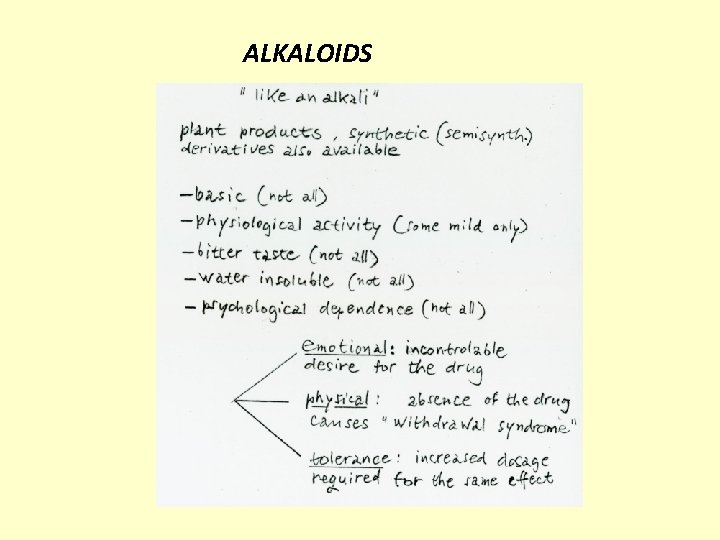 ALKALOIDS
" like an alkali "
plant products, synthetic (semisynth.)
derivatives also available
- basic (not all)
- physiological activity (some mild only)
- bitter taste (not all)
- water insoluble (not all)
- psychological dependence (not all)
emotional: incontrolable
desire for the drug
physical: absence of the drug
causes "withdrawal syndrome"
tolerance: increased dosage
required for the same effect